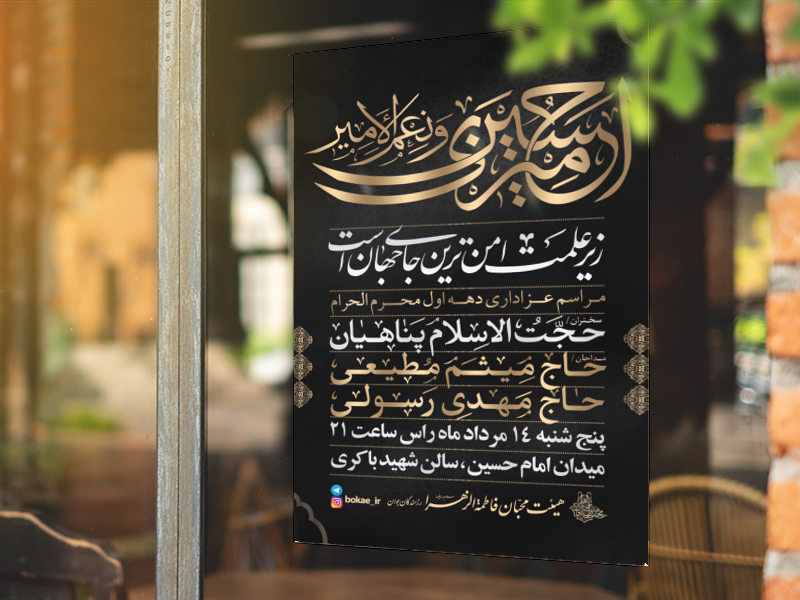 امیری حسین ونعم الامیر
زیر علمت امن ترین جای جهان است
مراسم عزاداری دهه اول محرم الحرام
سخنران/
حجت الاسلام پناهیان
مداحان/
حاج میثم مطیعی
حاج مهدی رسولی
پنج شنبه ۱۴ مرداد ماه راس ساعت ۲۱
میدان امام حسین ،سالن شهید باکری
هیئت محبان فاطمة الزهرا
رزمندگان جوان
bokae_ir